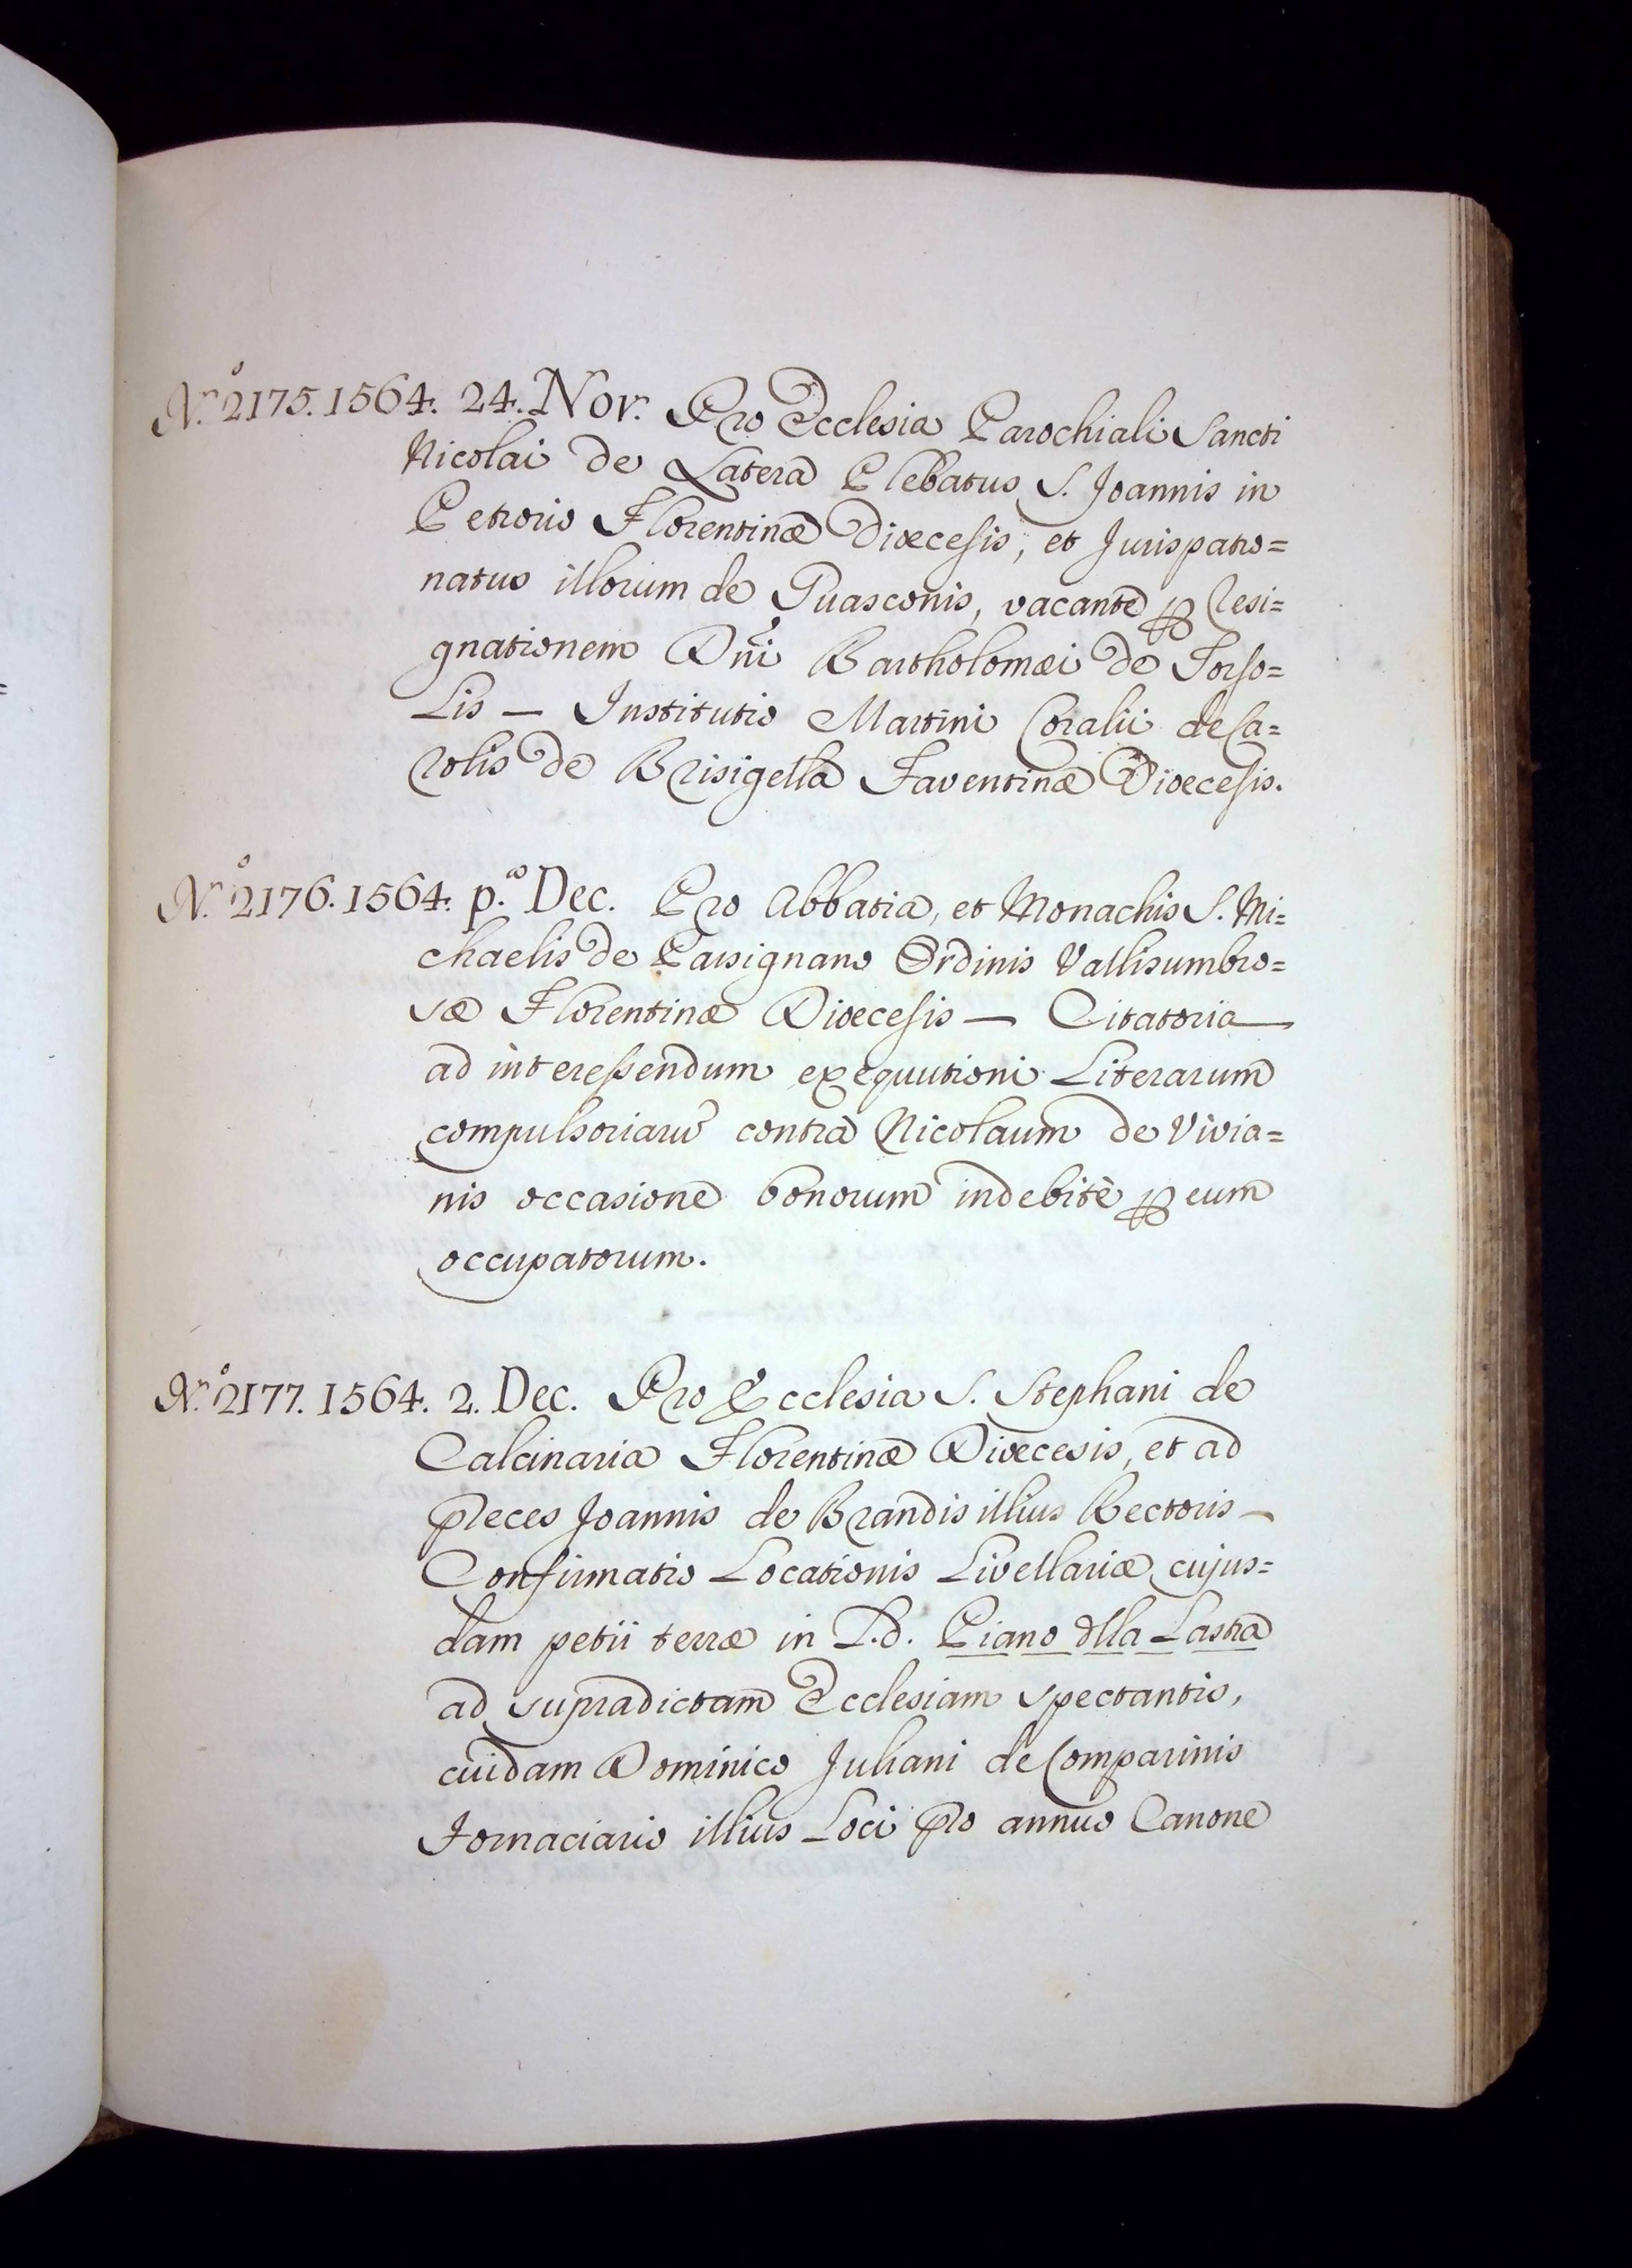 N.º 2175. 1564. 24. Nov. Pro Ecclesia Parochiali Sancti
Nicolai de Latera Plebatus S. Joannis in
Petrorio Florentinæ Diœcesis, et Jurispatro=
natus illorum de Guasconis, vacante ꝑ resi=
gnationem Dñi Bartholomæi de Torso=
Lis — Institutio Martini Coralii de Ca=
rolis de Brisigella Faventinæ Diœcesis.
N.º 2176. 1564. p.º Dec. Pro Abbatia, et Monachis S. Mi=
chaelis de Passignano Ordinis Vallisumbro=
sæ Florentinæ Diœcesis — Citatoria —
ad interessendum exequutioni Literarum
compulsoriarū contra Nicolaum de Vivia=
nis occasione bonorum indebitè ꝑ eum
occupatorum.
N.º 2177. 1564. 2. Dec. Pro Ecclesia S. Stephani de
Calcinaria Florentinæ Diœcesis, et ad
preces Joannis de Brandis illius Rectoris —
Confirmatio Locationis Livellariæ cujus=
dam petii terræ in L.d. Piano dlla Lastra
ad supradictam Ecclesiam spectantis,
cuidam Dominico Juliani de Comparinis
Fornaciario illius Loci pro annuo Canone